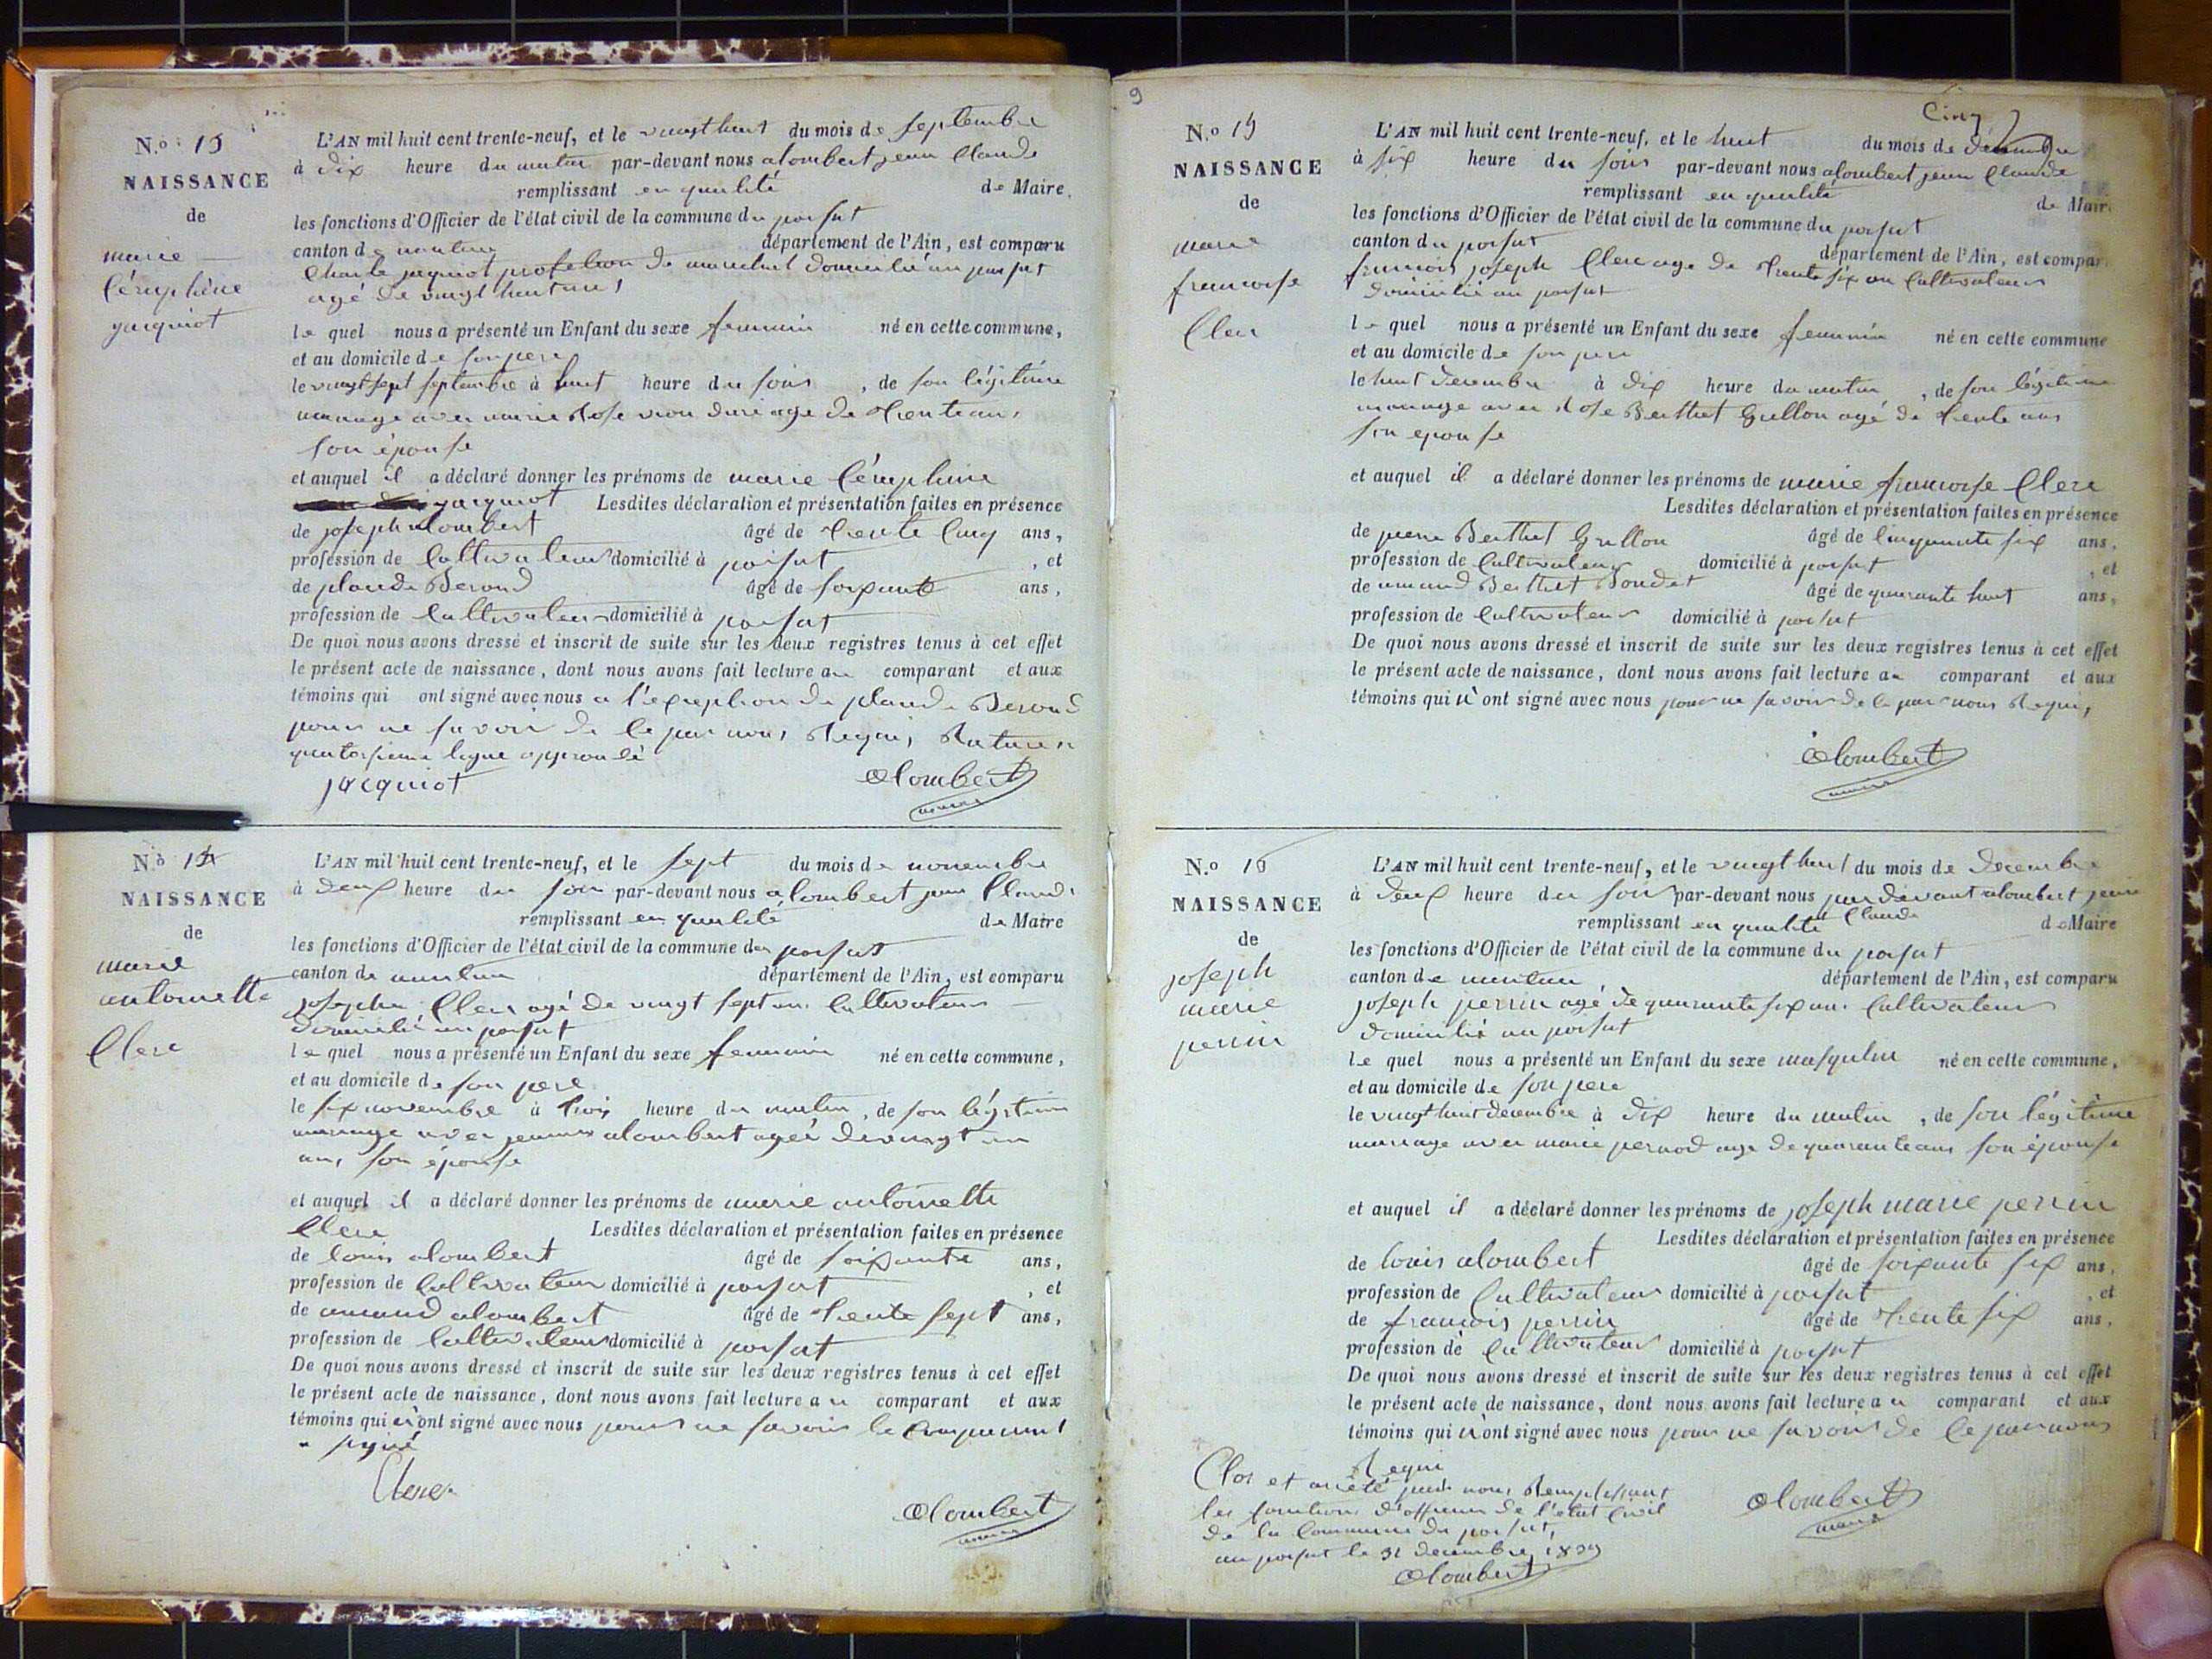 N.º 13
NAISSANCE
de
marie
Cémphine
jacquiot
L'AN mil huit cent trente-neuf, et le vingt huit du mois de septembre
à dix heure du matin par-devant nous alombert jean Claude
remplissant en qualité de Maire.
les fonctions d'Officier de l'état civil de la commune du poisat
canton de nantua département de l'Ain, est comparu
Charle jaquiot profession de marechal domicilié au poisat
agé de vingt huit ans
le quel nous a présenté un Enfant du sexe feminin né en cette commune,
et au domicile de son pere
le vingt sept septembre à huit heure du soir, de son légitime
mariage avec marie Rose agé de trente ans
son épouse
et auquel il a déclaré donner les prénoms de marie Cémphine
jacquiot Lesdites déclaration et présentation faites en présence
de joseph alombert âgé de trente cinq ans,
profession de Cultivateur domicilié à poisat, et
de plaude Berond âgé de soixante ans,
profession de Cultivateur domicilié à poisat
De quoi nous avons dressé et inscrit de suite sur les deux registres tenus à cet effet
le présent acte de naissance, dont nous avons fait lecture au comparant et aux
témoins qui ont signé avec nous a l'exception de plaude Berond
pour ne savoir de ce par nous Requis Rature a
quatorsieme ligne approuvé
jacquiot alombert
maire
N.º 14
NAISSANCE
de
marie
antoinette
Clerc
L'AN mil huit cent trente-neuf, et le sept du mois de novembre
à deux heure du soir par-devant nous alombert jean Claude
remplissant en qualité de Maire
les fonctions d'Officier de l'état civil de la commune du poisat
canton de nantua département de l'Ain, est comparu
joseph Clerc agé de vingt sept ans Cultivateur
domicilié au poisat
le quel nous a présenté un Enfant du sexe feminin né en cette commune,
et au domicile de son pere
le six novembre à trois heure du matin, de son légitime
mariage avec jeanne alombert agée de vingt un
ans son épouse
et auquel il a déclaré donner les prénoms de marie antoinette
Clerc Lesdites déclaration et présentation faites en présence
de louis alombert âgé de soixante ans,
profession de Cultivateur domicilié à poisat, et
de amand alombert âgé de trente sept ans,
profession de Cultivateur domicilié à poisat
De quoi nous avons dressé et inscrit de suite sur les deux registres tenus à cet effet
le présent acte de naissance, dont nous avons fait lecture au comparant et aux
témoins qui n'ont signé avec nous pour ne savoir le comparant
a signé
Clerc
alombert
maire
9
Cinq
N.º 15
NAISSANCE
de
marie
francoise
Clerc
L'AN mil huit cent trente-neuf, et le huit du mois de décembre
à six heure du soir par-devant nous alombert jean Claude
remplissant en qualité de Maire
les fonctions d'Officier de l'état civil de la commune du poisat
canton du poisat département de l'Ain, est comparu
francois joseph Clerc age de trente six an Cultivateur
domicilié au poisat
le quel nous a présenté un Enfant du sexe feminin né en cette commune
et au domicile de son pere
le huit décembre à dix heure du matin, de son légitime
mariage avec Rose Berthet Grillon agé de trente ans
son epouse
et auquel il a déclaré donner les prénoms de marie francoise Clerc
Lesdites déclaration et présentation faites en présence
de pierre Berthet Grillon âgé de cinquante six ans,
profession de Cultivateur domicilié à poisat, et
de amand Berthet Bondet âgé de quarante huit ans,
profession de Cultivateur domicilié à poisat
De quoi nous avons dressé et inscrit de suite sur les deux registres tenus à cet effet
le présent acte de naissance, dont nous avons fait lecture au comparant et aux
témoins qui n'ont signé avec nous pour ne savoir de ce par nous Requis
alombert
maire
N.º 16
NAISSANCE
de
joseph
marie
perrin
L'AN mil huit cent trente-neuf, et le vingt huit du mois de decembre
à deux heure du soir par-devant nous par devant alombert jean
Claude
remplissant en qualité de Maire
les fonctions d'Officier de l'état civil de la commune du poisat
canton de nantua département de l'Ain, est comparu
joseph perrin agé de quarante six ans Cultivateur
domicilié au poisat
le quel nous a présenté un Enfant du sexe masqulin né en cette commune,
et au domicile de son pere
le vingt huit decembre à dix heure du matin, de son légitime
mariage avec marie pernod age de quarante ans son épouse
et auquel il a déclaré donner les prénoms de joseph marie perrin
Lesdites déclaration et présentation faites en présence
de louis alombert âgé de soixante six ans,
profession de Cultivateur domicilié à poisat, et
de francois perrin âgé de trente six ans,
profession de Cultivateur domicilié à poisat
De quoi nous avons dressé et inscrit de suite sur les deux registres tenus à cet effet
le présent acte de naissance, dont nous avons fait lecture au comparant et aux
témoins qui n'ont signé avec nous pour ne savoir de ce par nous
Requi
alombert
maire
Clos et arrêté par nous Remplissant
les fonctions d'officier de l'état Civil
de la Commune du poisat,
au poisat le 31 decembre 1839
alombert